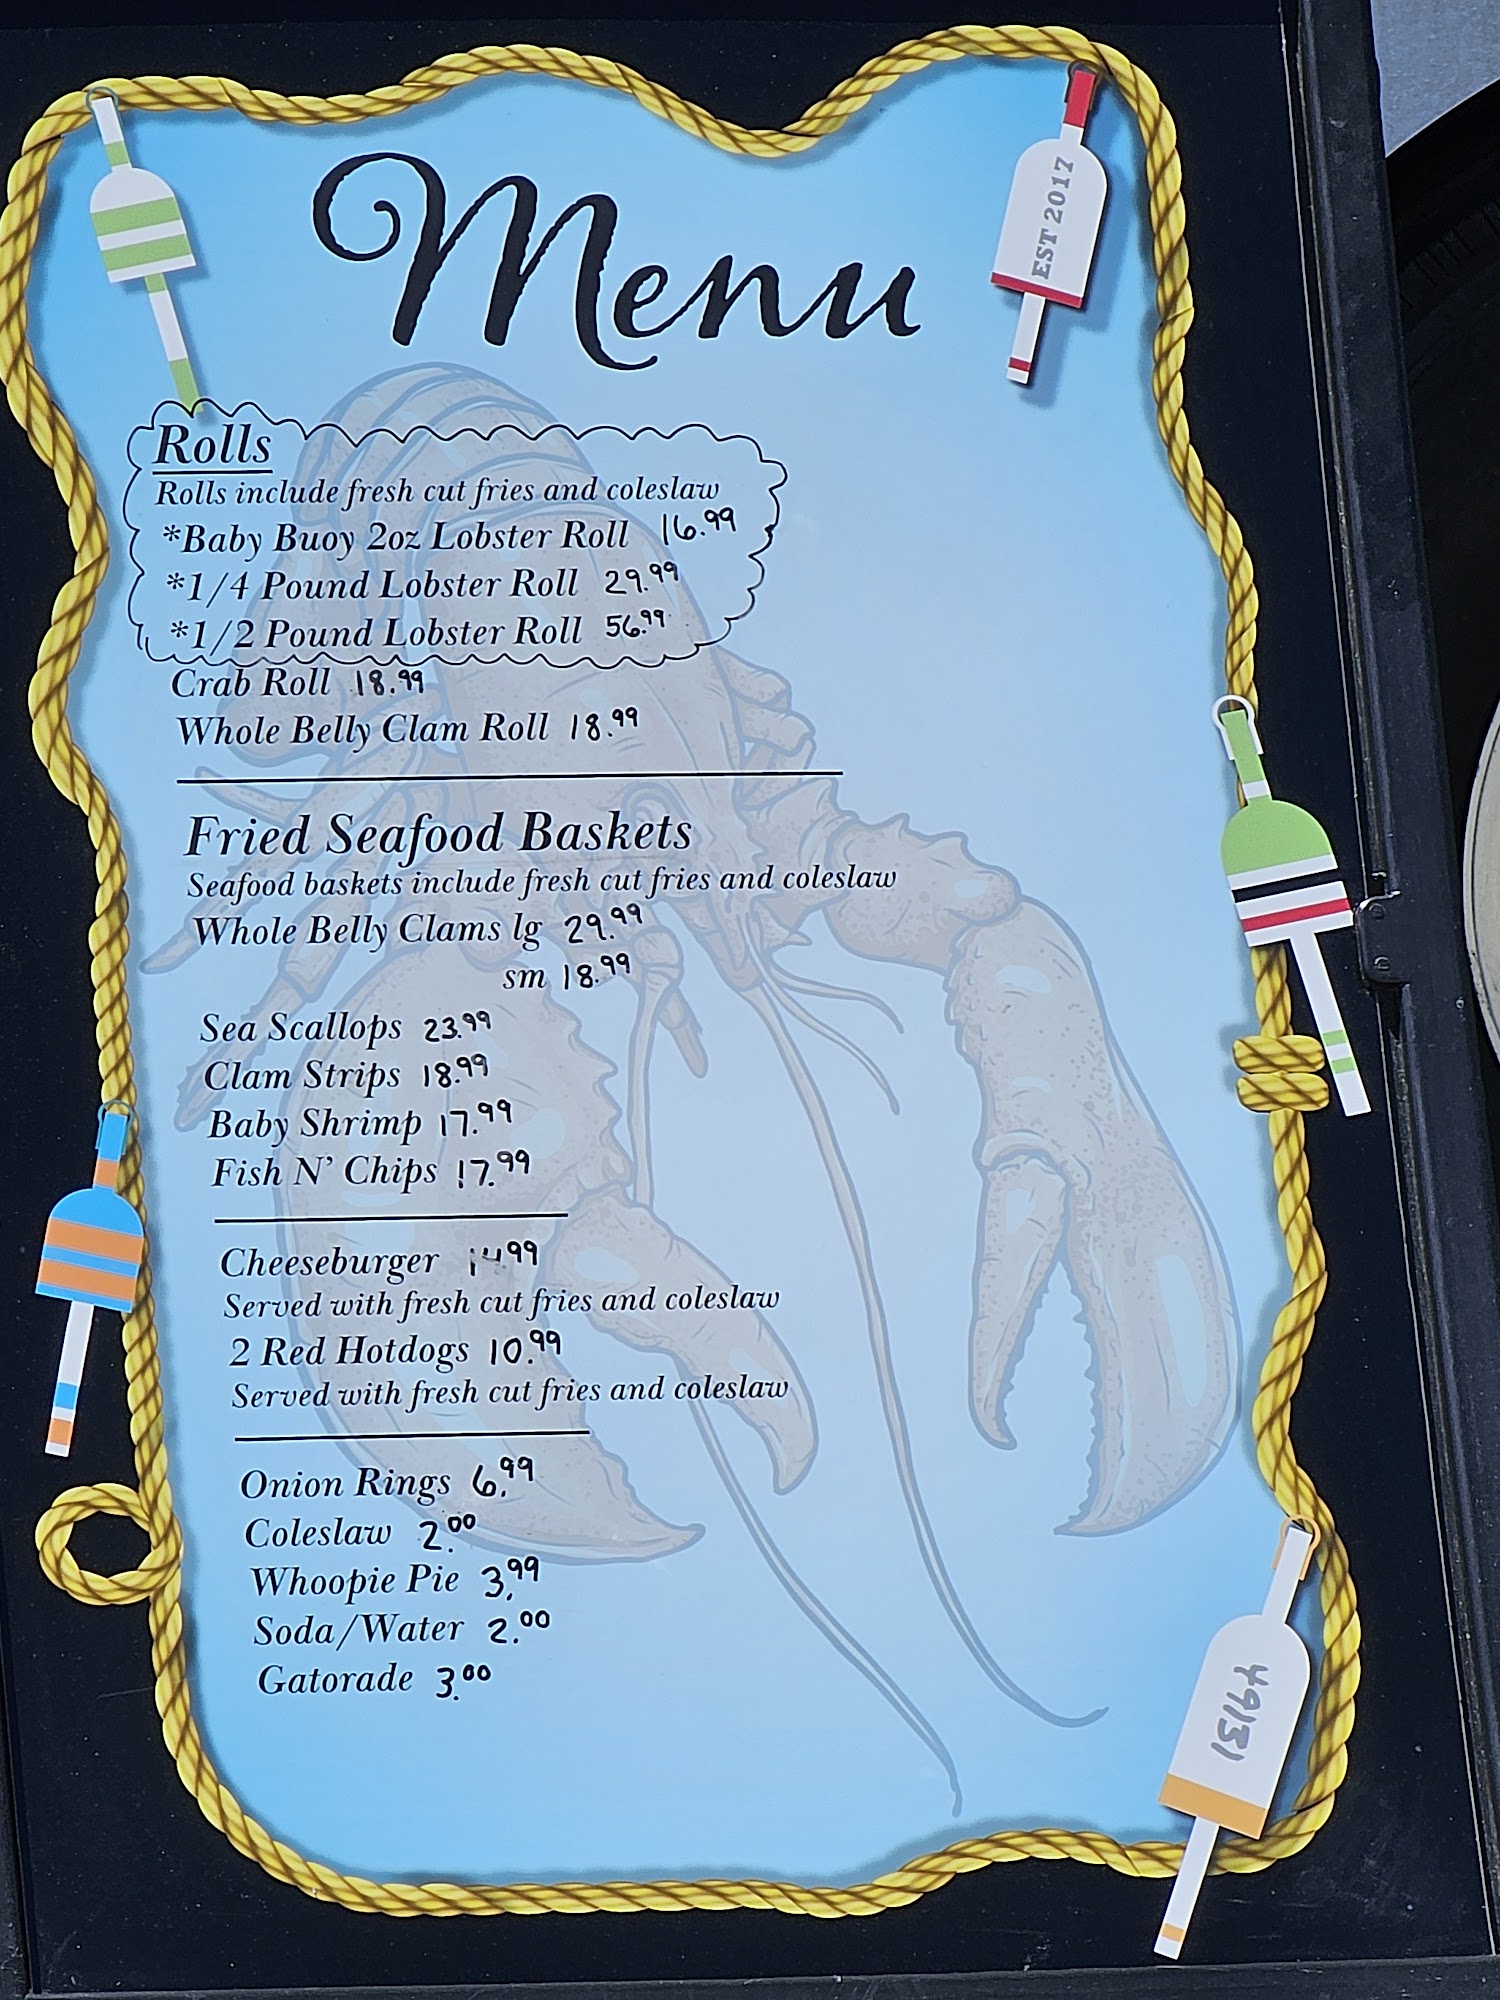 Menu
EST 2017
Rolls
Rolls include fresh cut fries and coleslaw
*Baby Buoy 2oz Lobster Roll 16.99
*1/4 Pound Lobster Roll 29.99
*1/2 Pound Lobster Roll 56.99
Crab Roll 18.99
Whole Belly Clam Roll 18.99
Fried Seafood Baskets
Seafood baskets include fresh cut fries and coleslaw
Whole Belly Clams lg 29.99
sm 18.99
Sea Scallops 23.99
Clam Strips 18.99
Baby Shrimp 17.99
Fish N' Chips 17.99
Cheeseburger 14.99
Served with fresh cut fries and coleslaw
2 Red Hotdogs 10.99
Served with fresh cut fries and coleslaw
Onion Rings 6.99
Coleslaw 2.00
Whoopie Pie 3.99
Soda/Water 2.00
Gatorade 3.00
49131